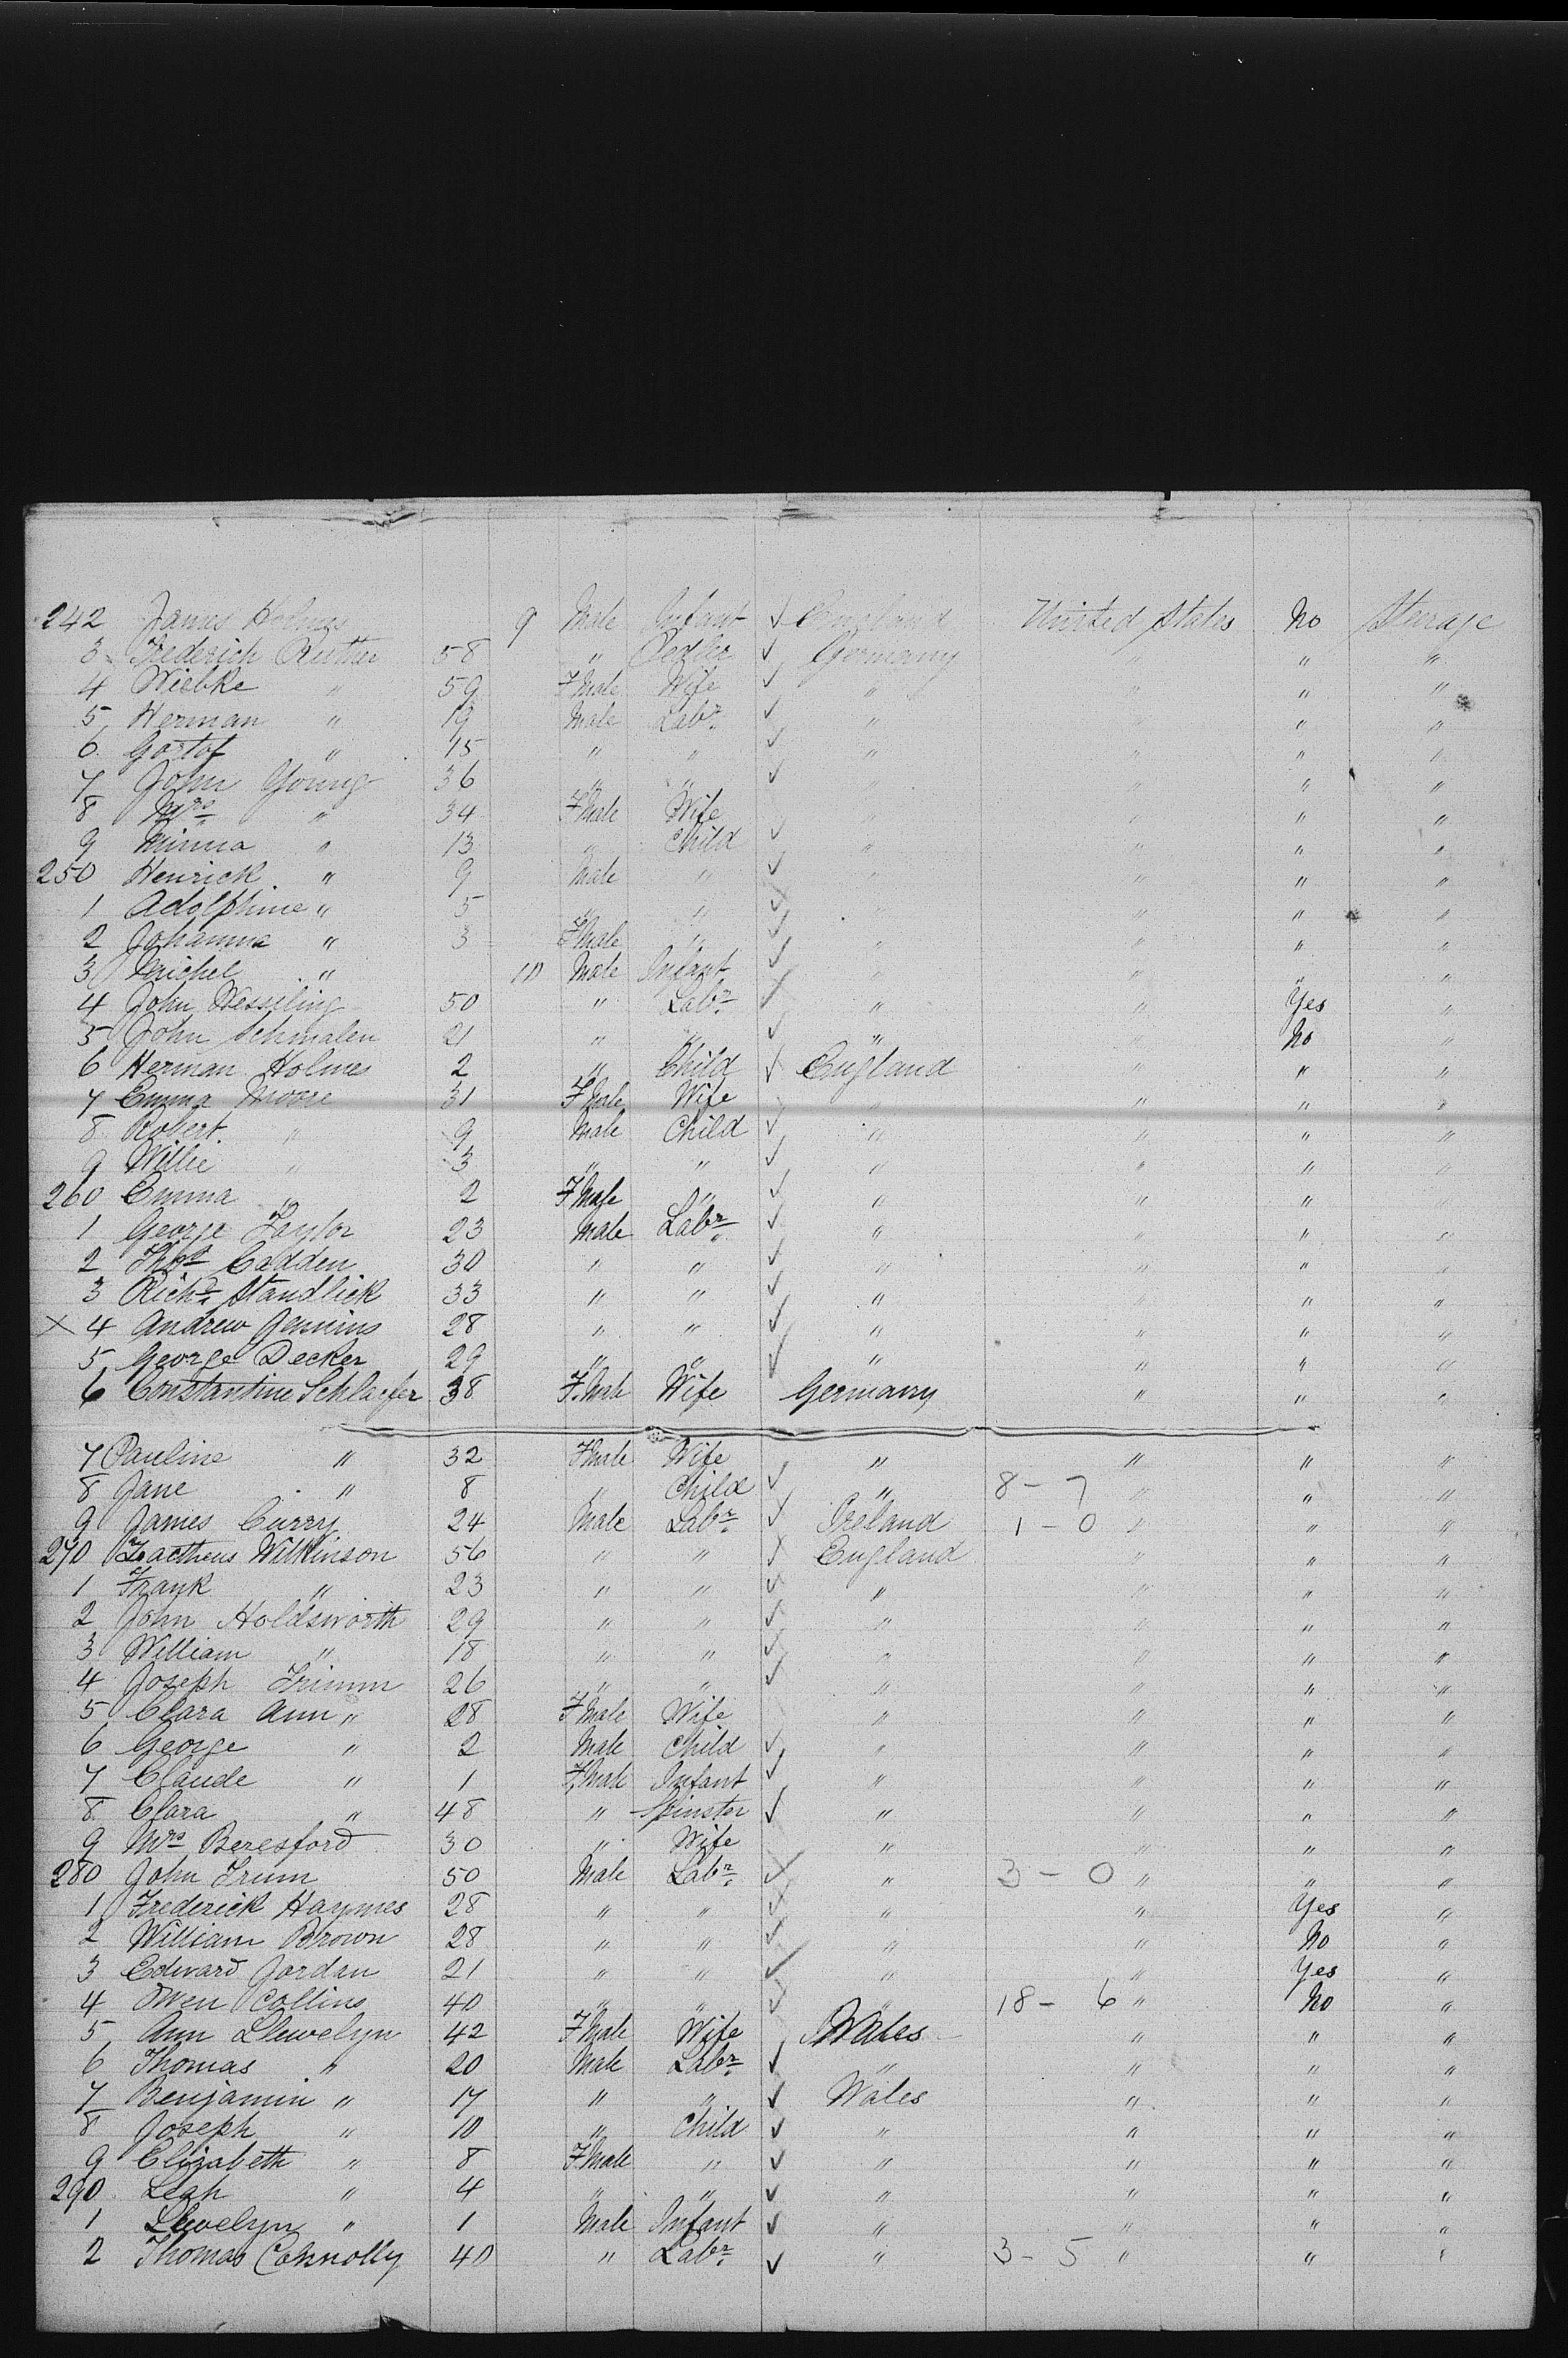 242 James Holmes 9 Male Infant ✓ England United States No Steerage
3 Frederich Rutter 58 " Pedler ✓ Germany " " "
4 Wiebke " 59 F Male Wife ✓ " " " "
5 Herman " 19 Male Labr. ✓ " " "
6 Gostof " 15 " " ✓ " " " "
7 John Young 36 " " ✓ " " "
8 Mrs " 34 F Male Wife " " " "
9 Minna " 13 " Child ✓ " " " "
250 Henrick " 9 Male " ✓ " " " "
1 Adolphine " 5 " " ✓ " " " "
2 Johanna " 3 F Male " ✓ " " " "
3 Michel " 10 Male Infant ✓ " " " "
4 John Wesseling 50 " Labr. ✓ " " Yes "
5 John Schmalen 21 " " ✓ " " No "
6 Herman Holmes 2 " Child ✓ England " " "
7 Emma Moore 31 F Male Wife " " " "
8 Robert " 9 Male Child ✓ " " " "
9 Willie " 3 " " ✓ " " " "
260 Emma " 2 F Male " ✓ " " " "
1 George Taylor 23 Male Labr. ✓ " " " "
2 Thos Cadden 30 " " ✓ " " " "
3 Richd. Standlick 33 " " ✓ " " " "
X 4 Andrew Jennins 28 " " ✓ " " " "
5 George Decker 29 " " ✓ " " " "
6 Constantine Schlaefer 38 F. Male Wife Germany " " "
7 Pauline " 32 F Male Wife " " " "
8 Jane " 8 " Child ✓ " 8 - 7 " " "
9 James Curry 24 Male Labr. ✓ Ireland 1 - 0 " " "
270 Zactheus Wilkinson 56 " " ✓ England " " "
1 Frank " 23 " " ✓ " " " "
2 John Holdsworth 29 " " ✓ " " " "
3 William " 18 " " ✓ " " " "
4 Joseph Trimm 26 " " ✓ " " " "
5 Clara Ann " 28 F Male Wife " " " "
6 George " 2 Male Child ✓ " " " "
7 Claude " 1 F. Male Infant ✓ " " " "
8 Clara " 48 " Spinster ✓ " " " "
9 Mrs Beresford 30 " Wife " " " "
280 John Trum 50 Male Labr. ✓ " 3 - 0 " " "
1 Frederick Haymes 28 " " ✓ " " Yes "
2 William Brown 28 " " ✓ " " No "
3 Edward Jordan 21 " " ✓ " " Yes "
4 Owen Collins 40 " " ✓ " 18 - 6 " No "
5 Ann Llewelyn 42 F Male Wife Wales " " "
6 Thomas " 20 Male Labr. ✓ " " " "
7 Benjamin " 17 " " ✓ Wales " " "
8 Joseph " 10 " Child ✓ " " " "
9 Elizabeth " 8 F. Male " ✓ " " " "
290 Leah " 4 " " ✓ " " " "
1 Llewelyn " 1 Male Infant ✓ " " " "
2 Thomas Connolly 40 " Labr. ✓ " 3 - 5 " " "